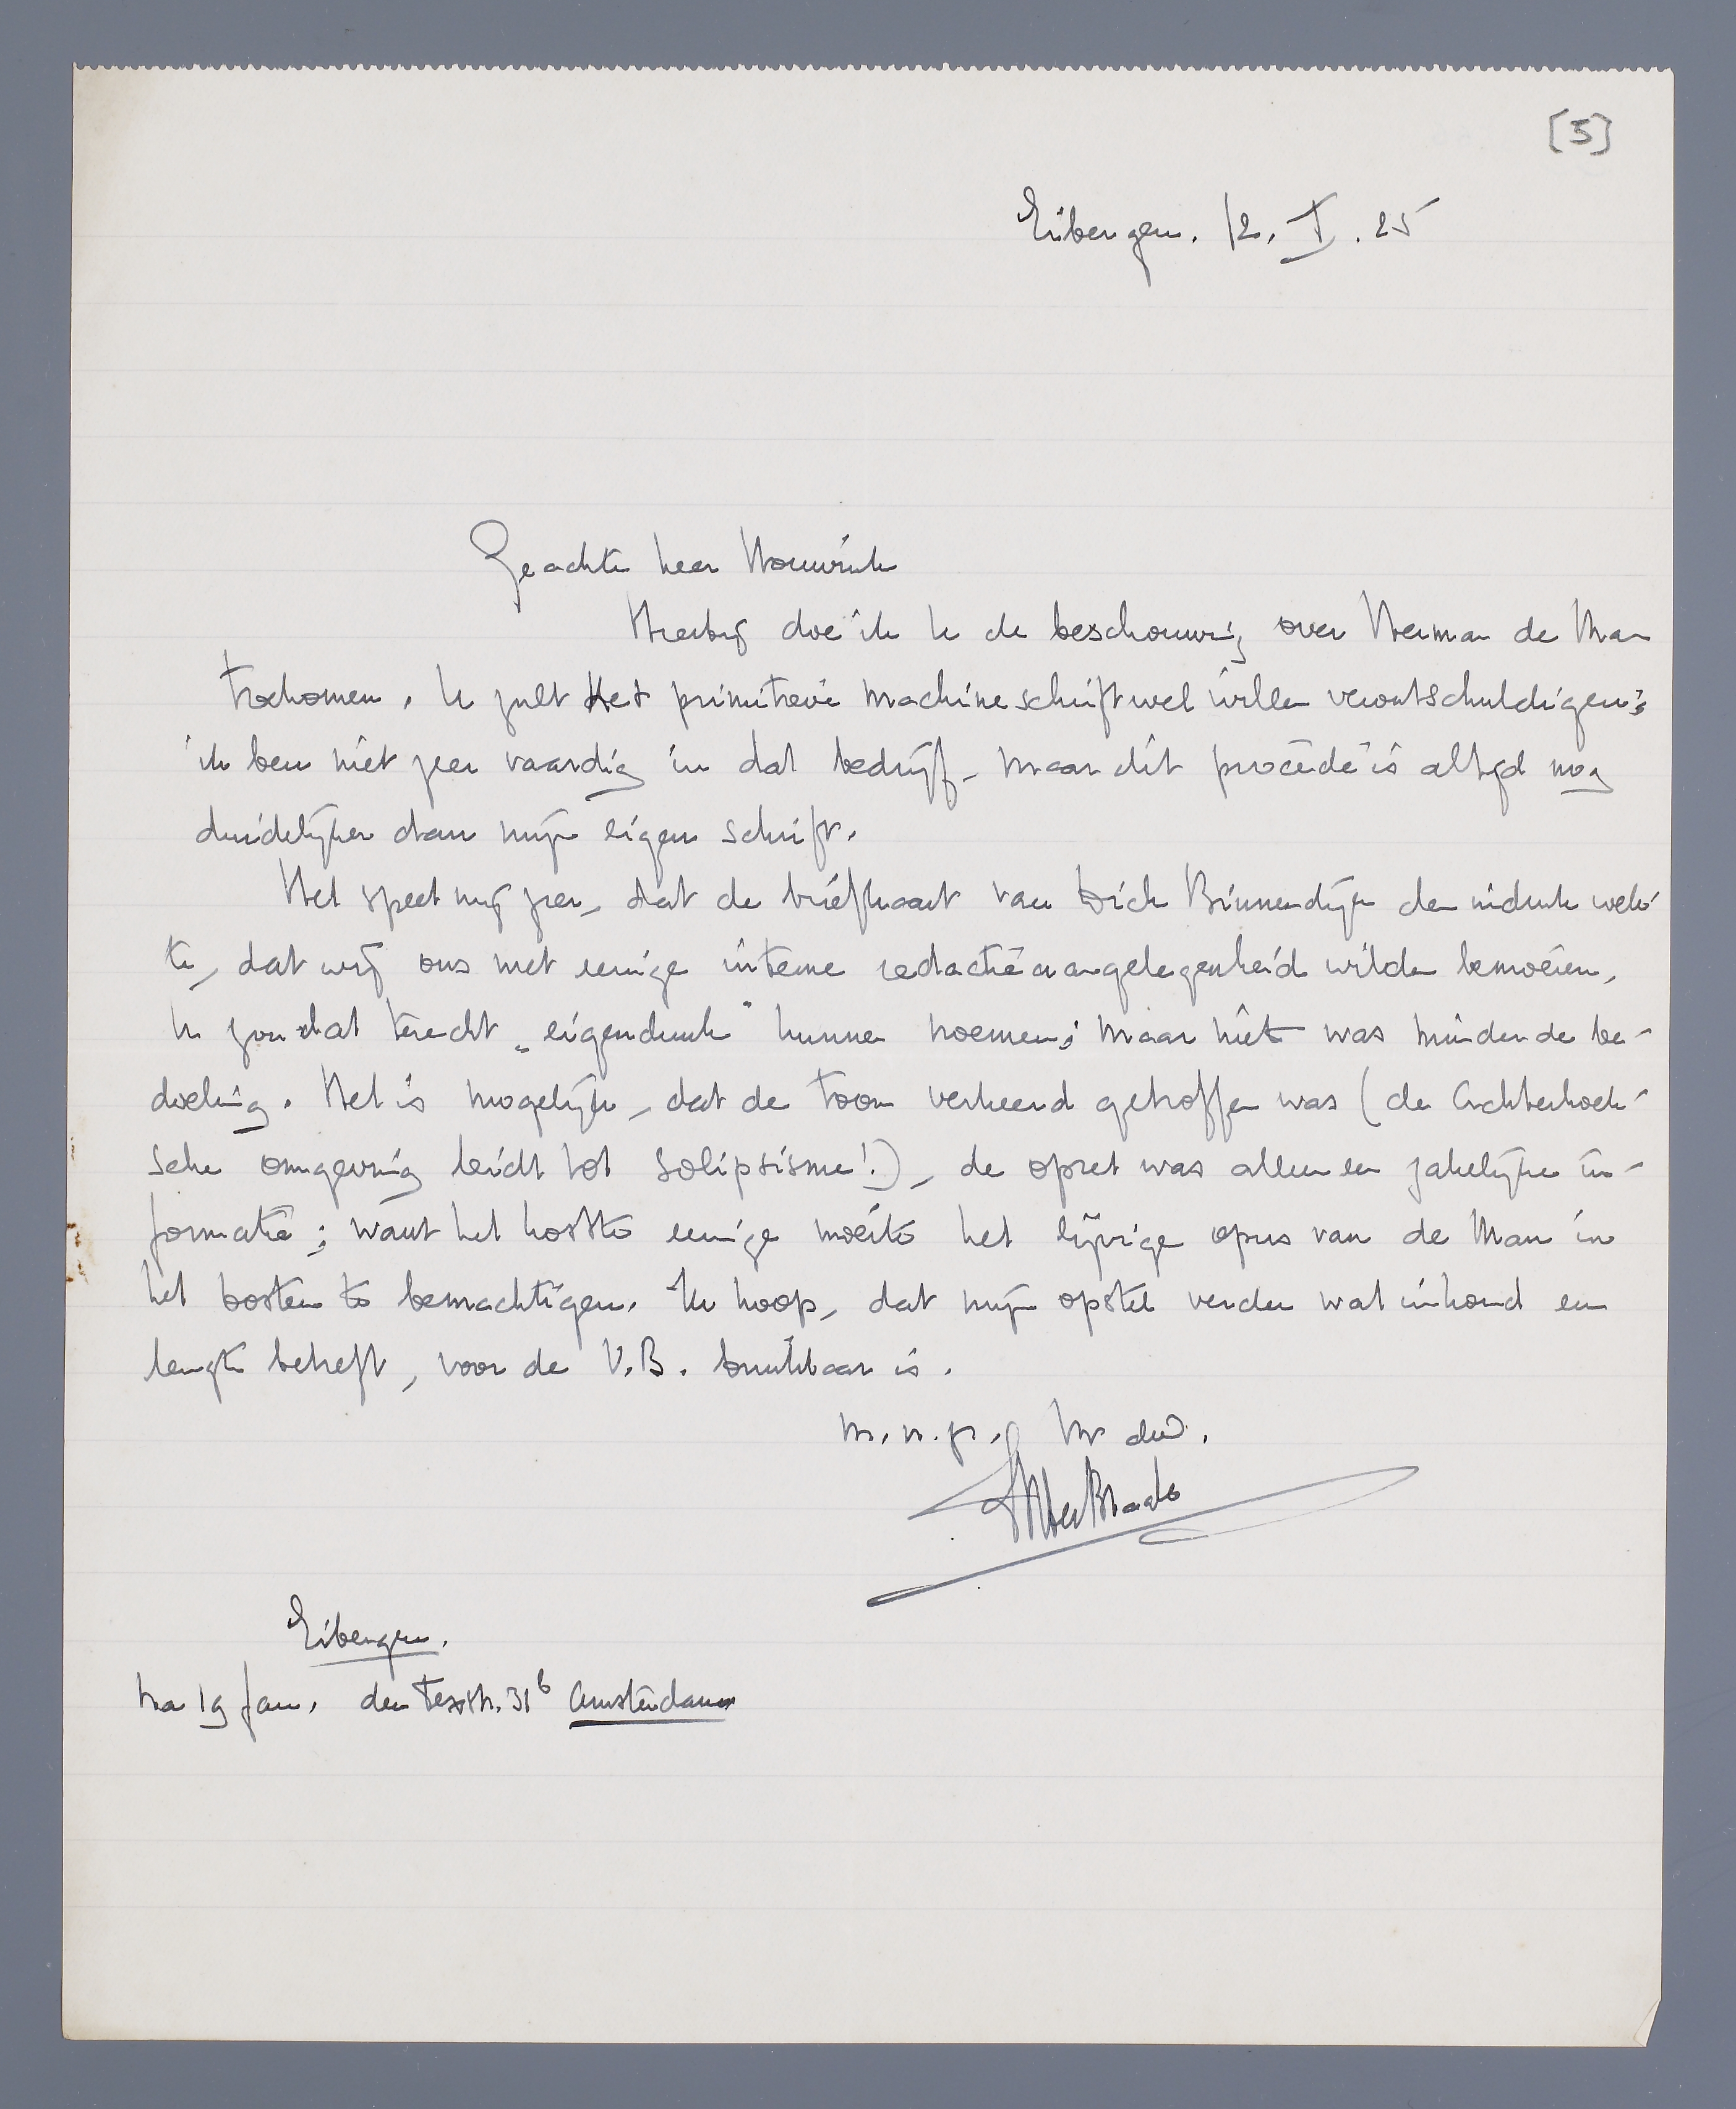 [5]
Eibergen. 12. I. 25
Geachte heer Houwink
Hierbij doe ik U de beschouwing over Herman de Man
toekomen. U zult het primitieve machineschrift wel willen verontschuldigen;
ik ben niet zeer vaardig in dat bedrijf, maar dit procédé is altijd nog
duidelijker dan mijn eigen schrift.
Het speet mij zeer, dat de briefkaart van Dick Binnendijk den indruk wek-
te, dat wij ons met eenige interne redactieaangelegenheid wilden bemoeien.
U zou dat terecht „eigendunk" kunnen noemen; maar niets was minder de be-
doeling. Het is mogelijk, dat de toon verkeerd getroffen was (de Achterhoek-
sche omgeving leidt tot solipsisme!), de opzet was alleen een zakelijke in-
formatie; want het kostte eenige moeite het lijvige opus van de Man in
het oosten te bemachtigen. Ik hoop, dat mijn opstel verder wat inhoud en
lengte betreft, voor de V.B. bruikbaar is.
m.v.g. Uw dw.
MterBraak
Eibergen.
na 19 Jan. den Texstr. 31b Amsterdam